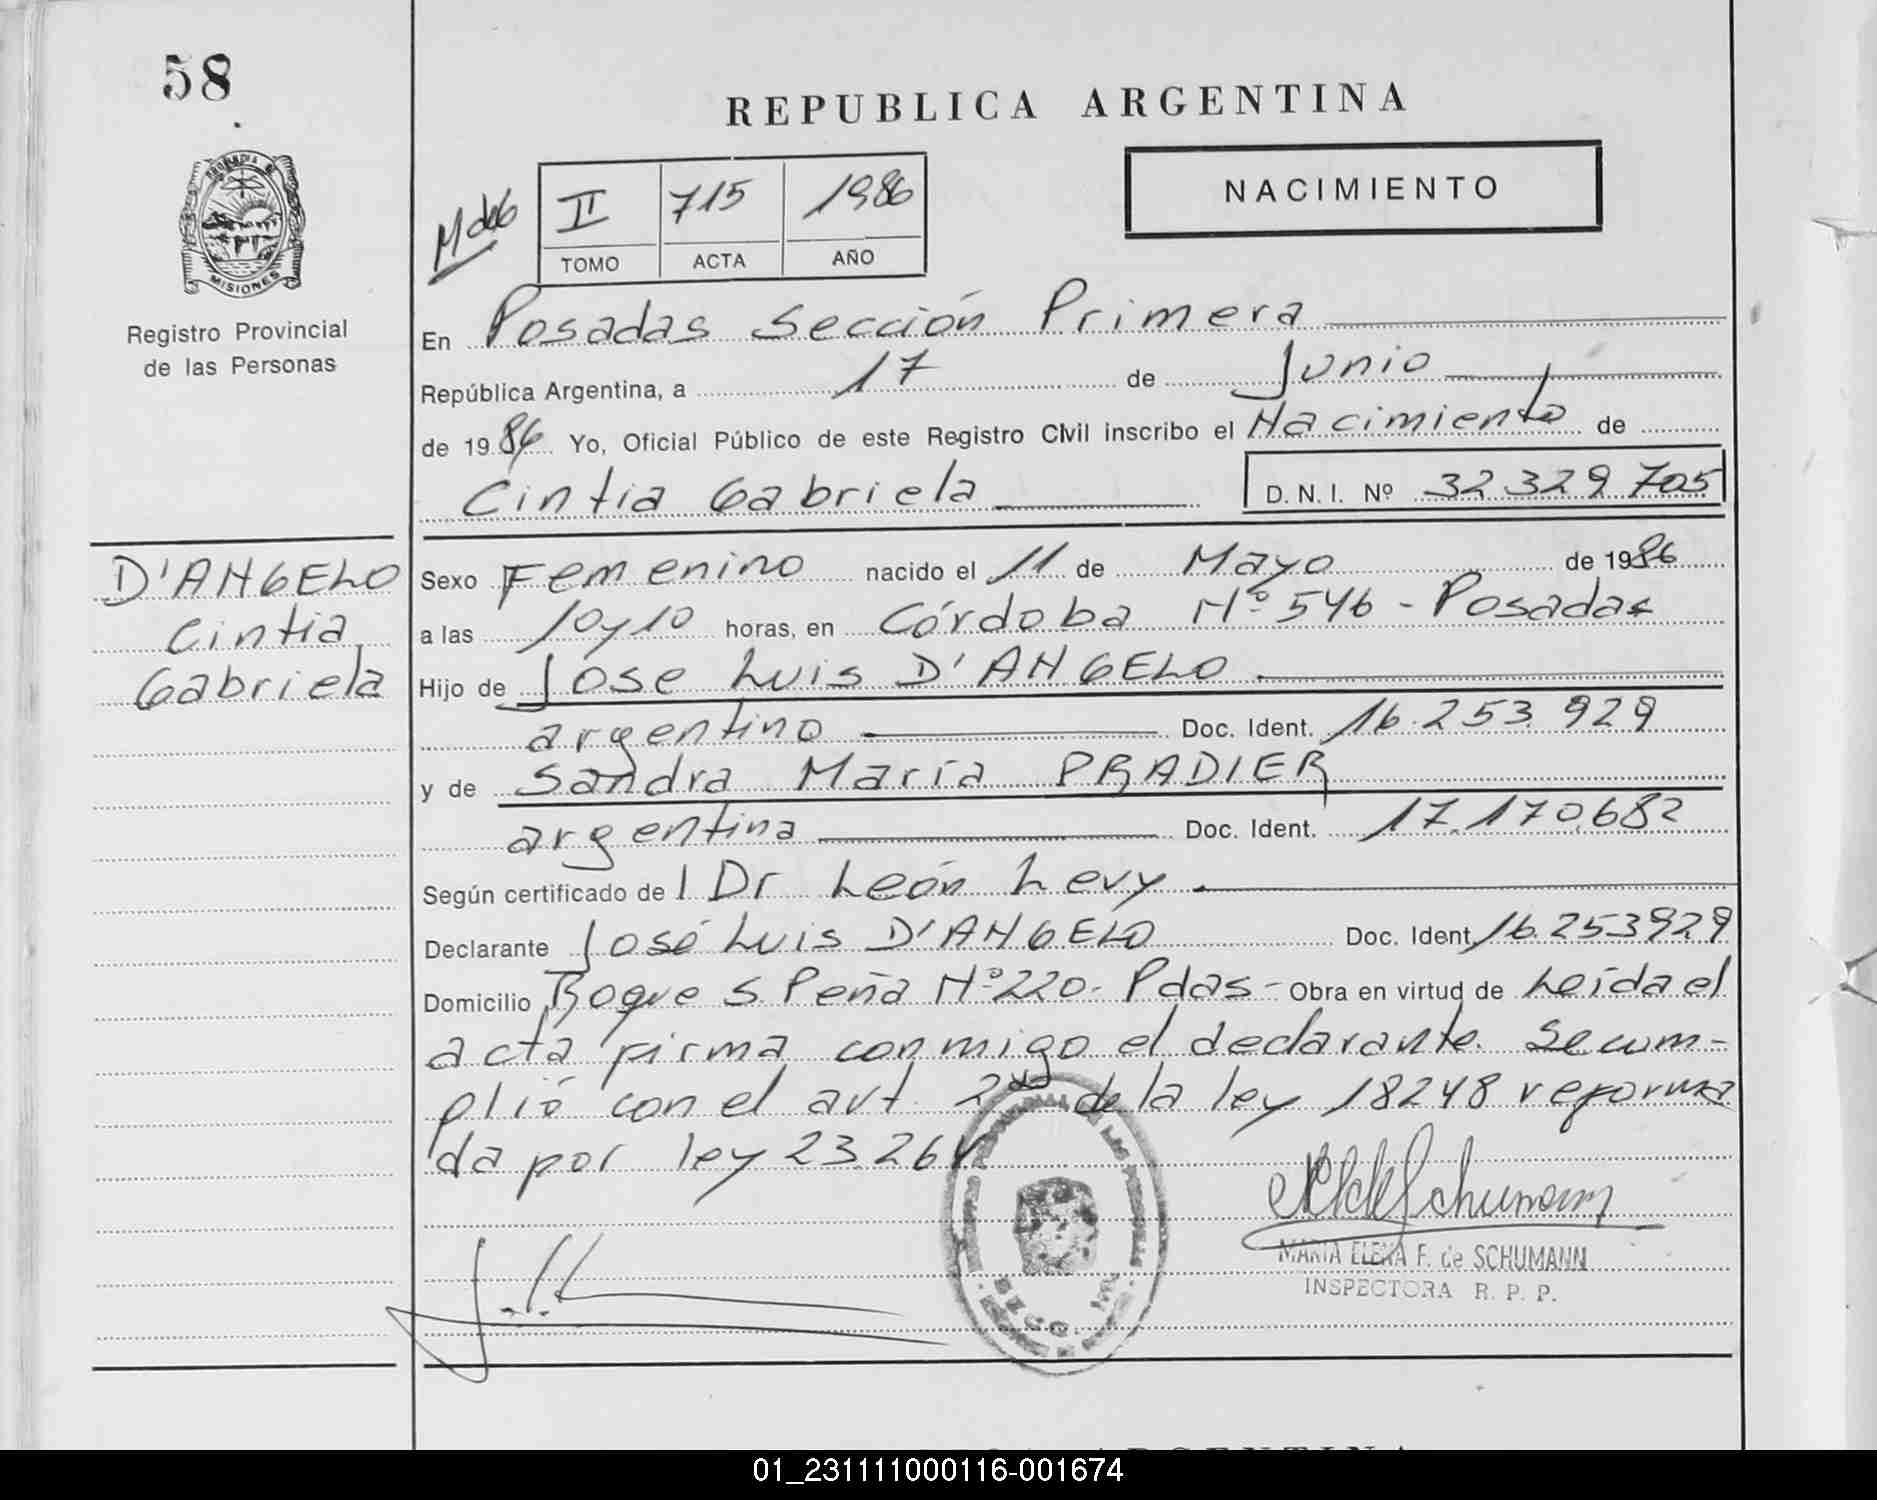 58
REPUBLICA ARGENTINA
NACIMIENTO
II 715 1986
TOMO ACTA AÑO
PROVINCIA DE
MISIONES
Registro Provincial
de las Personas
En Posadas Sección Primera
República Argentina, a 17 de Junio
de 1986 Yo, Oficial Público de este Registro Civil inscribo el Nacimiento de
Cintia Gabriela D.N.I. Nº 32 329 705
D'ANGELO
Cintia
Gabriela
Sexo Femenino nacido el 11 de Mayo de 1986
a las 10 y 10 horas, en Córdoba Nº 546 - Posadas
Hijo de Jose Luis D'ANGELO
argentino Doc. Ident. 16.253.929
y de Sandra María PRADIER
argentina Doc. Ident. 17.170.682
Según certificado del Dr León Levy
Declarante José Luis D'ANGELO Doc. Ident. 16.253929
Domicilio Roque S. Peña Nº 220- Pdas- Obra en virtud de Leída el
acta firma conmigo el declarante. Se cum-
plió con el art. 2do de la ley 18248 reforma
da por ley 23.264
MARIA ELENA F. de SCHUMANN
INSPECTORA R. P. P.
01_231111000116-001674